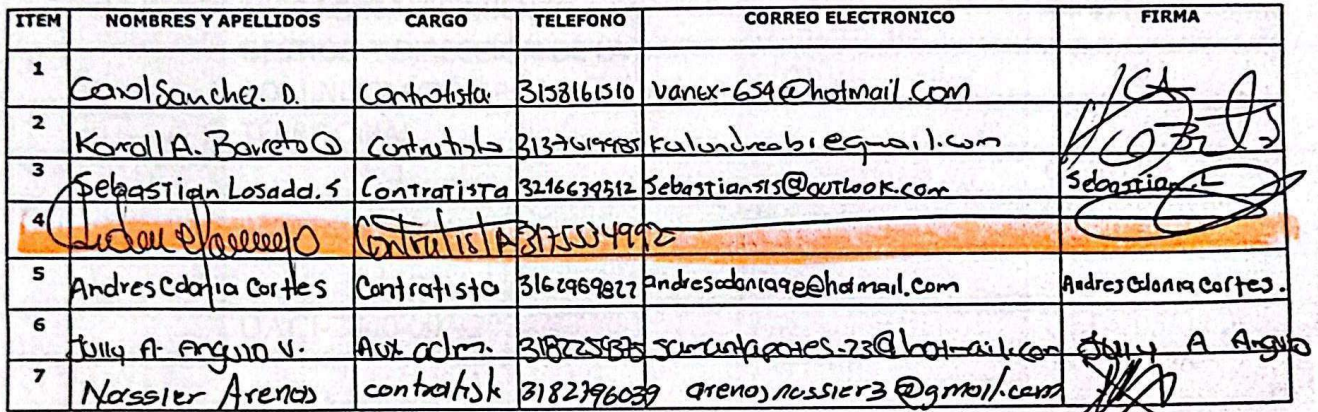 ITEM NOMBRES Y APELLIDOS CARGO TELEFONO CORREO ELECTRONICO FIRMA
1 Carol Sanchez. D. Contratista 3158161510 vanex-654@hotmail.com
2 Karoll A. Barreto Contratista kalundreabi@gmail.com
3 Sebastian Losada. S Contratista 3216639512 Sebastiansis@outlook.com Sebastian. L
4 Contratista 3175534992
5 Andres Colonia Cortes Contratista 3162969827 Andres Colonia Cortes.
6 Jully A. Angulo V. Aux adm. Jully A Angulo
7 Nassier Arenas contratista 3182796039 arenasnassier3@gmail.com